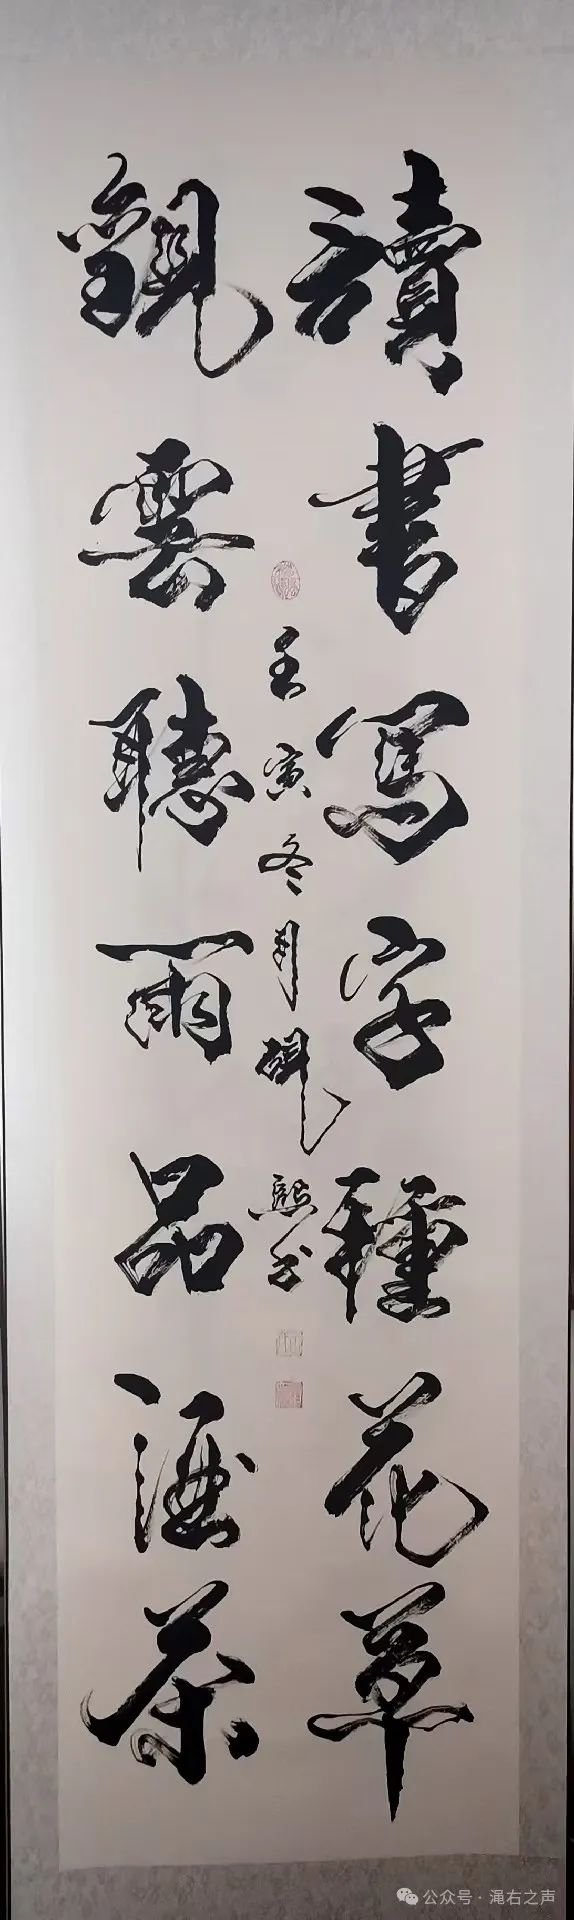 讀書寫字種花草
觀雲聽雨品酒茶
壬寅冬月
公众号·渑右之声